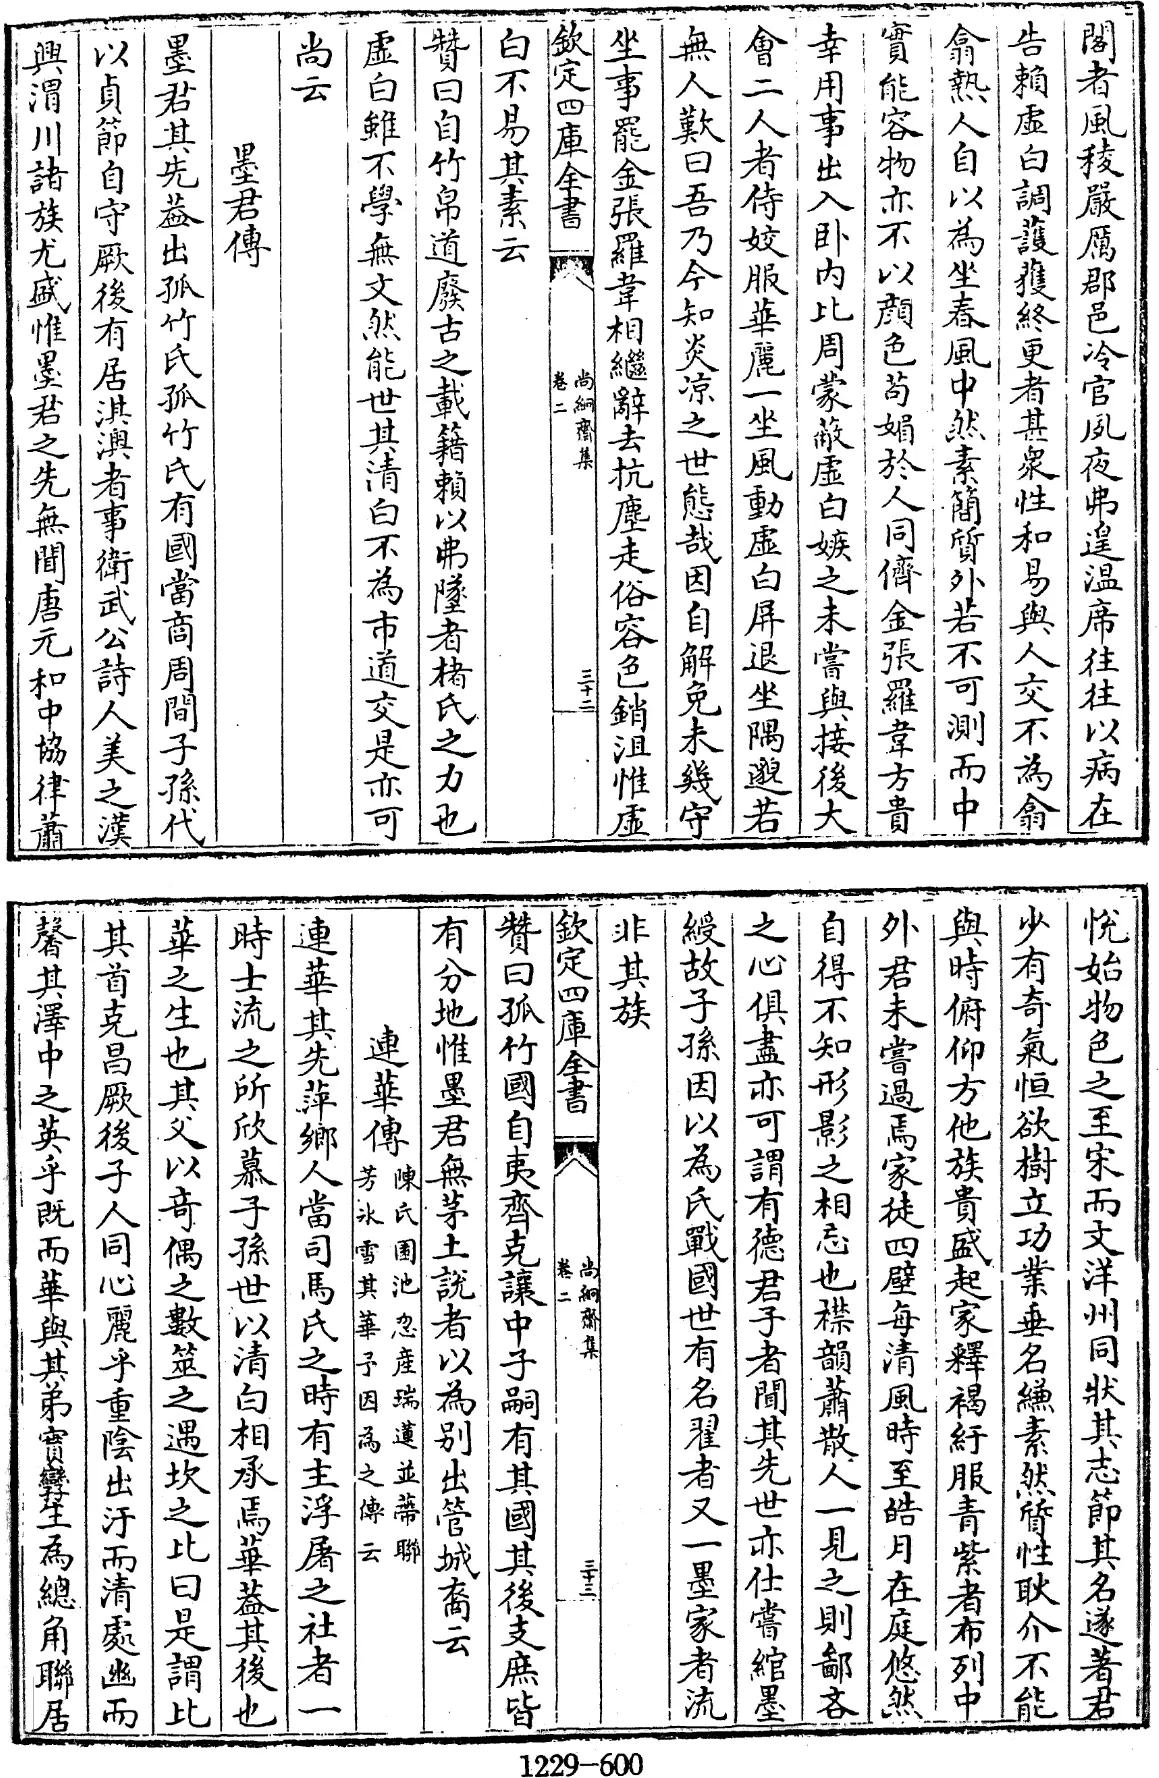 閣者風稜嚴厲郡邑冷官夙夜弗遑溫席往往以病在
告賴虛白調護獲終更者甚衆性和易與人交不為翕
翕熱人自以為坐春風中然素簡質外若不可測而中
實能容物亦不以顔色苟媚於人同儕金張羅韋方貴
幸用事出入卧内比周蒙蔽虛白嫉之未嘗與接後大
會二人者侍姣服華麗一坐風動虛白屏退坐隅邈若
無人歎曰吾乃今知炎凉之世態哉因自解免未幾守
坐事罷金張羅韋相繼辭去抗塵走俗容色銷沮惟虛
欽定四庫全書
尚絅齋集
卷二
三十二
白不易其素云
贊曰自竹帛道廢古之載籍賴以弗墜者楮氏之力也
虛白雖不學無文然能世其清白不為市道交是亦可
尚云
墨君傳
墨君其先葢出孤竹氏孤竹氏有國當商周間子孫代
以貞節自守厥後有居淇澳者事衛武公詩人美之漢
興渭川諸族尤盛惟墨君之先無聞唐元和中協律蕭
悅始物色之至宋而文洋州同狀其志節其名遂著君
少有奇氣恒欲樹立功業垂名縑素然質性耿介不能
與時俯仰方他族貴盛起家釋褐紆服青紫者布列中
外君未嘗過焉家徒四壁每清風時至皓月在庭悠然
自得不知形影之相忘也襟韻蕭散人一見之則鄙吝
之心俱盡亦可謂有德君子者聞其先世亦仕嘗綰墨
綬故子孫因以為氏戰國世有名翟者又一墨家者流
非其族
欽定四庫全書
尚絅齋集
卷二
三十三
贊曰孤竹國自夷齊克讓中子嗣有其國其後支庶皆
有分地惟墨君無茅土說者以為别出管城裔云
連華傳
陳氏圃池忽産瑞蓮並蔕聯
芳氷雪其華予因為之傳云
連華其先萍鄉人當司馬氏之時有主浮屠之社者一
時士流之所欣慕子孫世以清白相承焉華葢其後也
華之生也其父以竒偶之數筮之遇坎之比曰是謂比
其首克昌厥後子人同心麗乎重陰出汙而清處幽而
馨其澤中之英乎既而華與其弟實孿生為總角聯居
1229—600